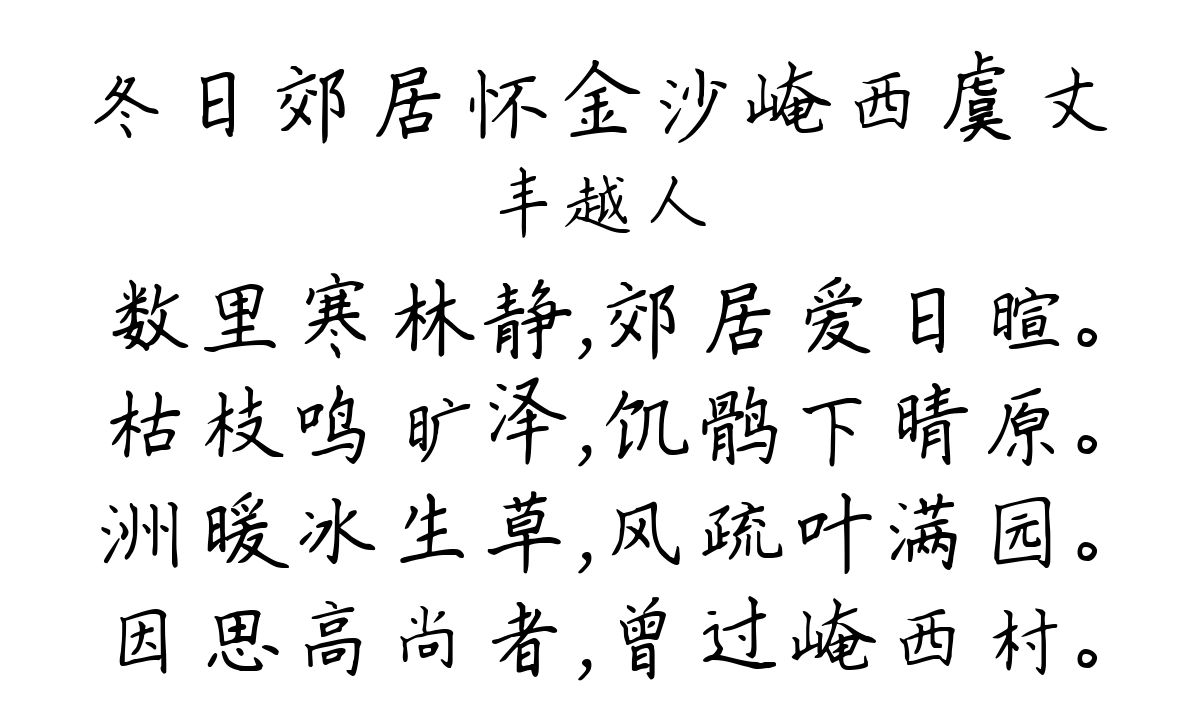 冬日郊居怀金沙崦西虞丈
丰越人
数里寒林静,郊居爱日暄。
枯枝鸣旷泽,饥鹘下晴原。
洲暖冰生草,风疏叶满园。
因思高尚者,曾过崦西村。